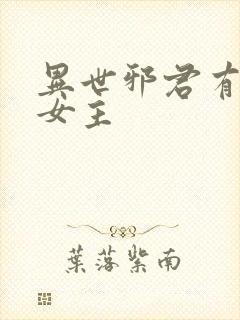 異世邪君有
女主
葉落紫南